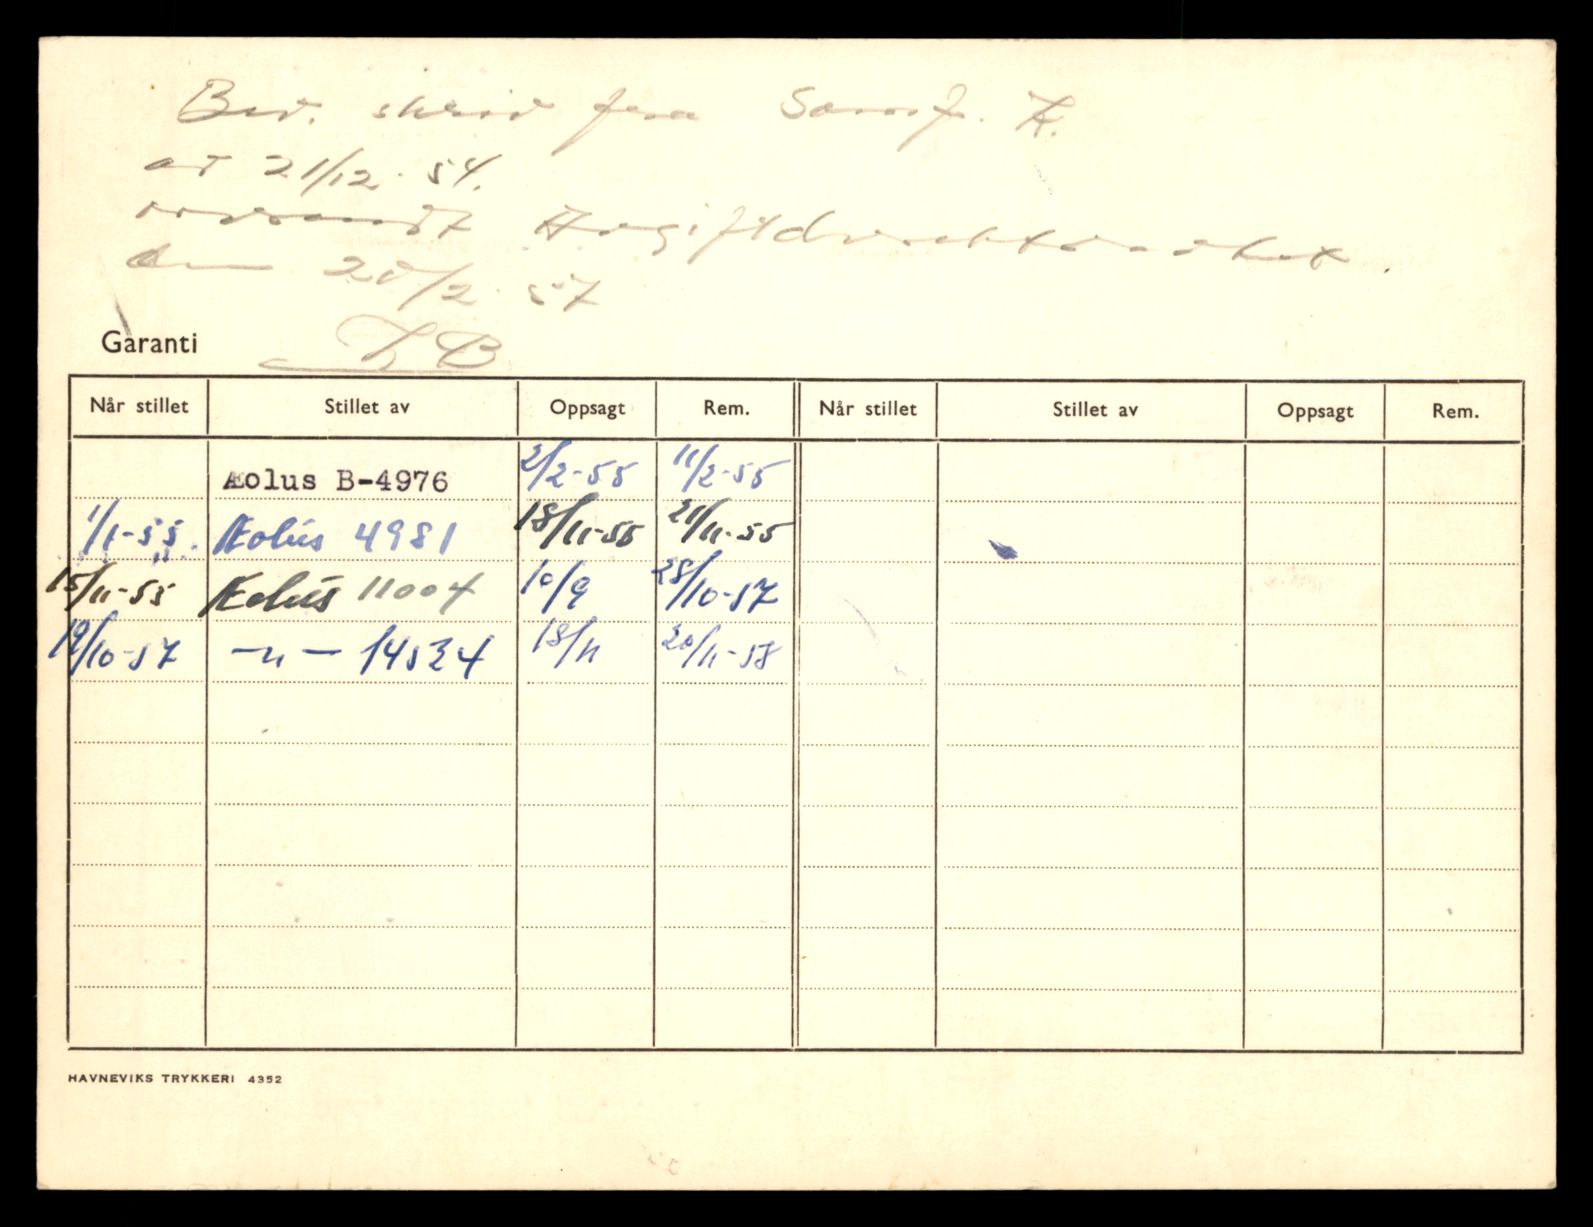 Bev. skriv fra Samf. K.
av 21/12-54.
oversendt Avgiftdirektoratet
den 20/2-57
KB
Garanti
Når stillet Stillet av Oppsagt Rem. Når stillet Stillet av Oppsagt Rem.
Æolus B-4976 2/2-55 11/2-55
1/1-55. Æolus 4981 18/11-55 21/11-55
15/11-55 Æolus 11004 10/9 28/10-57
19/10-57 -"- 14534 18/11 20/11-58
HAVNEVIKS TRYKKERI 4352